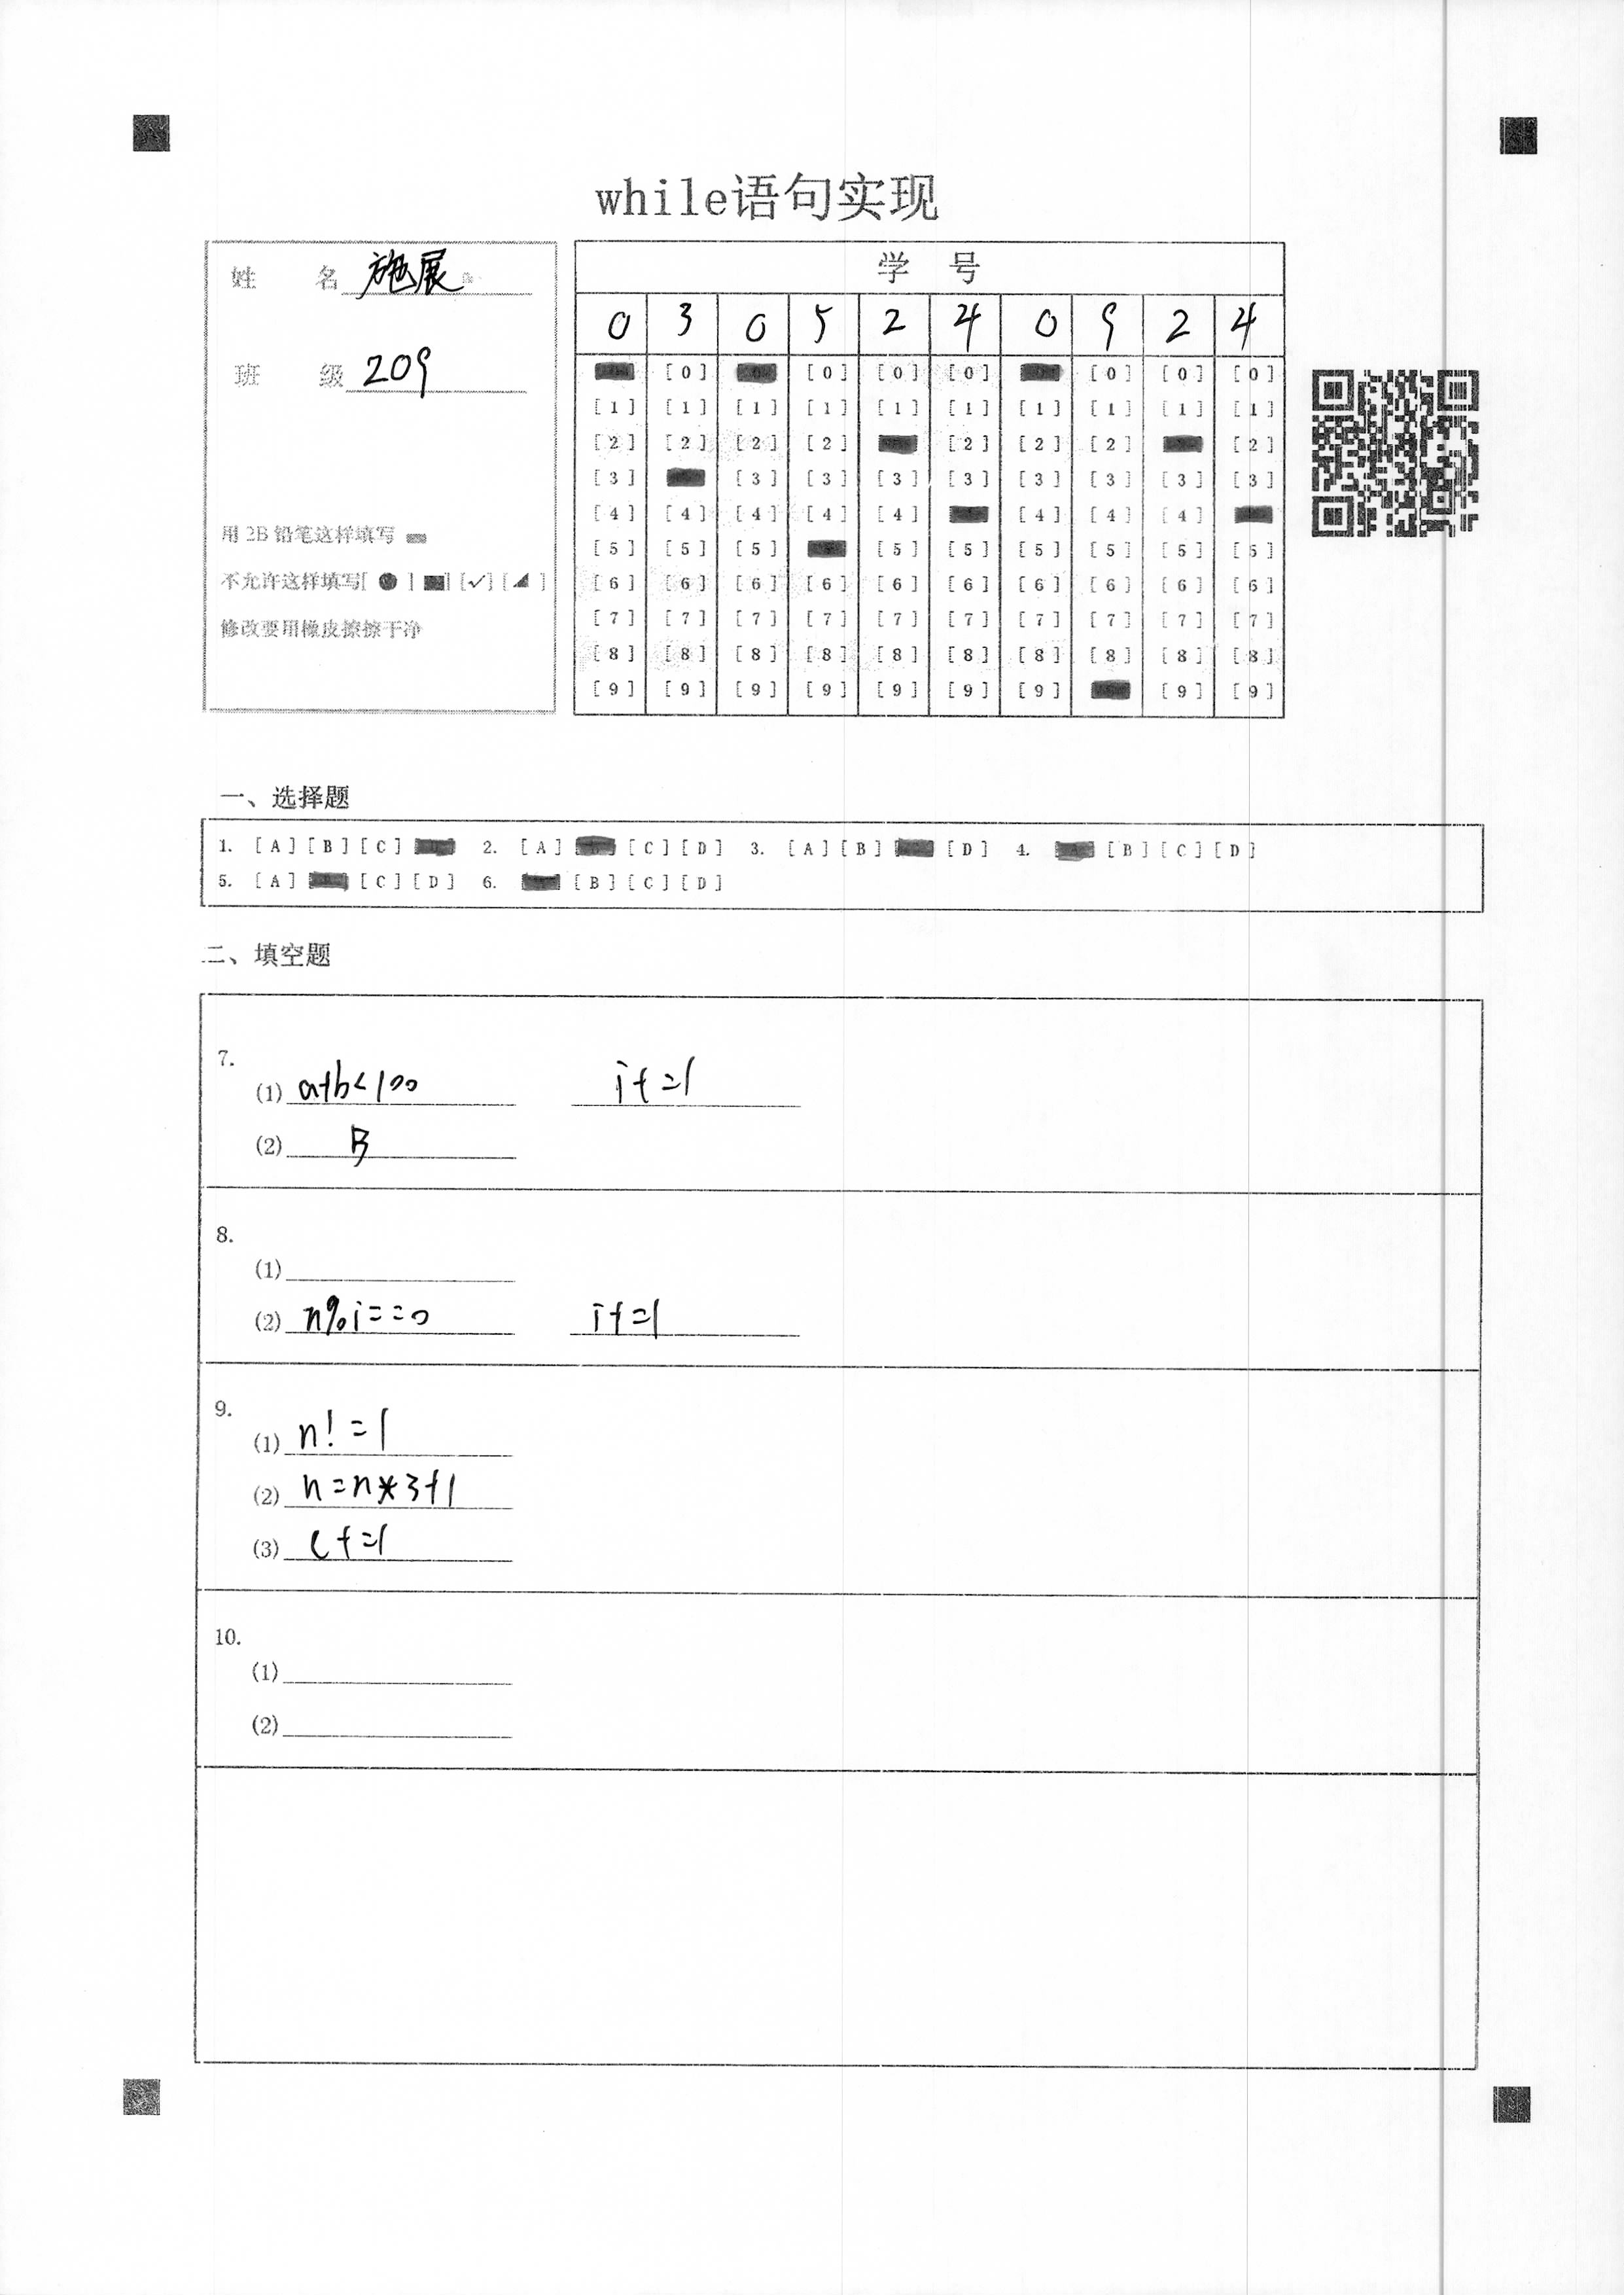 while语句实现
姓 名 施展
班 级 209
用 2B 铅笔这样填写
不允许这样填写[ ● ] [■] [✓] [◢ ]
修改要用橡皮擦擦干净
学 号
0 3 0 5 2 4 0 9 2 4
[0] [0] [0] [0] [0] [0] [0]
[1] [1] [1] [1] [1] [1] [1] [1] [1] [1]
[2] [2] [2] [2] [2] [2] [2] [2]
[3] [3] [3] [3] [3] [3] [3] [3] [3]
[4] [4] [4] [4] [4] [4] [4] [4]
[5] [5] [5] [5] [5] [5] [5] [5] [5]
[6] [6] [6] [6] [6] [6] [6] [6] [6] [6]
[7] [7] [7] [7] [7] [7] [7] [7] [7] [7]
[8] [8] [8] [8] [8] [8] [8] [8] [8] [8]
[9] [9] [9] [9] [9] [9] [9] [9] [9]
一、选择题
1. [A] [B] [C] 2. [A] [C] [D] 3. [A] [B] [D] 4. [B] [C] [D]
5. [A] [C] [D] 6. [B] [C] [D]
二、填空题
7.
(1) a+b<100 i+=1
(2) B
8.
(1)
(2) n%i==0 i+=1
9.
(1) n!=1
(2) n=n*3+1
(3) c+=1
10.
(1)
(2)